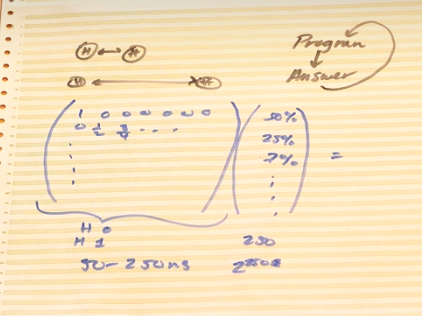 H H
H H
Program
Answer
1 0 0 0 0 0 0
0 1/2 3/4 . . .
50%
25%
7%
=
H 0
H 1
50-250ns
250
2^250